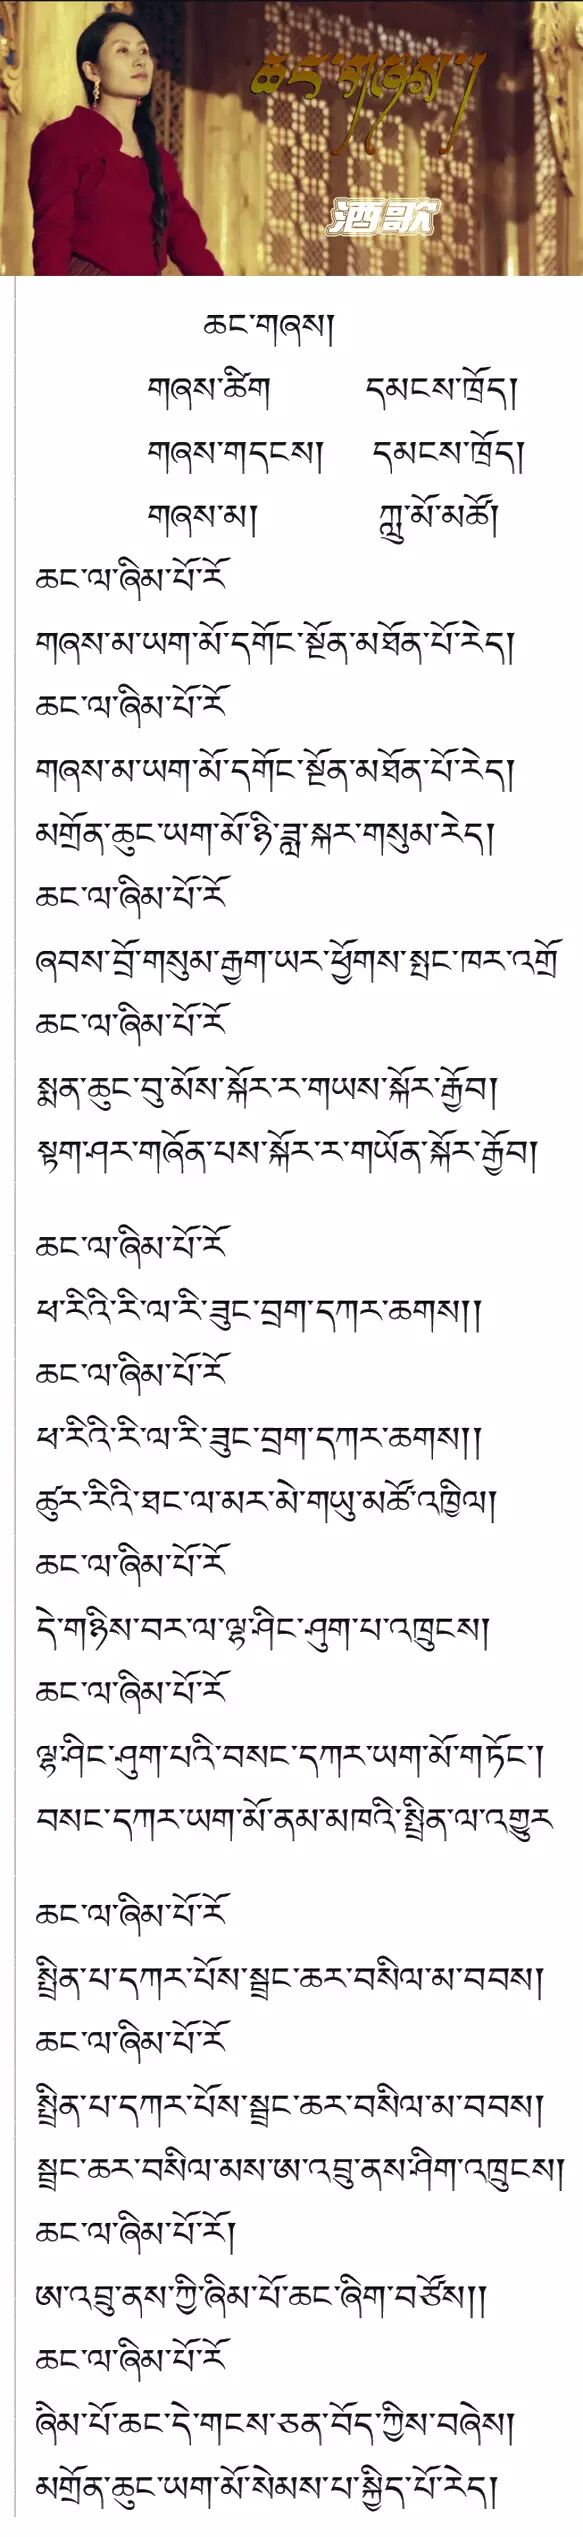 ཆང་གཞས།
酒歌
ཆང་གཞས།
གཞས་ཚིག དམངས་ཁྲོད།
གཞས་གདངས། དམངས་ཁྲོད།
གཞས་མ། ཀླུ་མོ་མཚོ།
ཆང་ལ་ཞིམ་པོ་རོ
གཞས་མ་ཡག་མོ་དགོང་སྔོན་མཐོན་པོ་རེད།
ཆང་ལ་ཞིམ་པོ་རོ
གཞས་མ་ཡག་མོ་དགོང་སྔོན་མཐོན་པོ་རེད།
མགྲོན་ཆུང་ཡག་མོ་ཉི་ཟླ་སྐར་གསུམ་རེད།
ཆང་ལ་ཞིམ་པོ་རོ
ཞབས་བྲོ་གསུམ་རྒྱག་ཡར་ཕྱོགས་སྤང་ཁར་འགྲོ
ཆང་ལ་ཞིམ་པོ་རོ
སྨན་ཆུང་བུ་མོས་སྐོར་ར་གཡས་སྐོར་རྒྱོབ།
སྟག་ཤར་གཞོན་པས་སྐོར་ར་གཡོན་སྐོར་རྒྱོབ།
ཆང་ལ་ཞིམ་པོ་རོ
ཕ་རིའི་རི་ལ་རི་ཟུང་བྲག་དཀར་ཆགས།།
ཆང་ལ་ཞིམ་པོ་རོ
ཕ་རིའི་རི་ལ་རི་ཟུང་བྲག་དཀར་ཆགས།།
ཚུར་རིའི་ཐང་ལ་མར་མེ་གཡུ་མཚོ་འཁྱིལ།
ཆང་ལ་ཞིམ་པོ་རོ
དེ་གཉིས་བར་ལ་ལྷ་ཤིང་ཤུག་པ་འཁྲུངས།
ཆང་ལ་ཞིམ་པོ་རོ
ལྷ་ཤིང་ཤུག་པའི་བསང་དཀར་ཡག་མོ་གཏོང་།
བསང་དཀར་ཡག་མོ་ནམ་མཁའི་སྤྲིན་ལ་འགྱུར
ཆང་ལ་ཞིམ་པོ་རོ
སྤྲིན་པ་དཀར་པོས་སྦྲང་ཆར་བསིལ་མ་བབས།
ཆང་ལ་ཞིམ་པོ་རོ
སྤྲིན་པ་དཀར་པོས་སྦྲང་ཆར་བསིལ་མ་བབས།
སྦྲང་ཆར་བསིལ་མས་ཨ་འབྲུ་ནས་ཤིག་འཁྲུངས།
ཆང་ལ་ཞིམ་པོ་རོ།
ཨ་འབྲུ་ནས་ཀྱི་ཞིམ་པོ་ཆང་ཞིག་བཙོས།།
ཆང་ལ་ཞིམ་པོ་རོ
ཞིམ་པོ་ཆང་དེ་གངས་ཅན་བོད་ཀྱིས་བཞེས།
མགྲོན་ཆུང་ཡག་མོ་སེམས་པ་སྐྱིད་པོ་རེད།